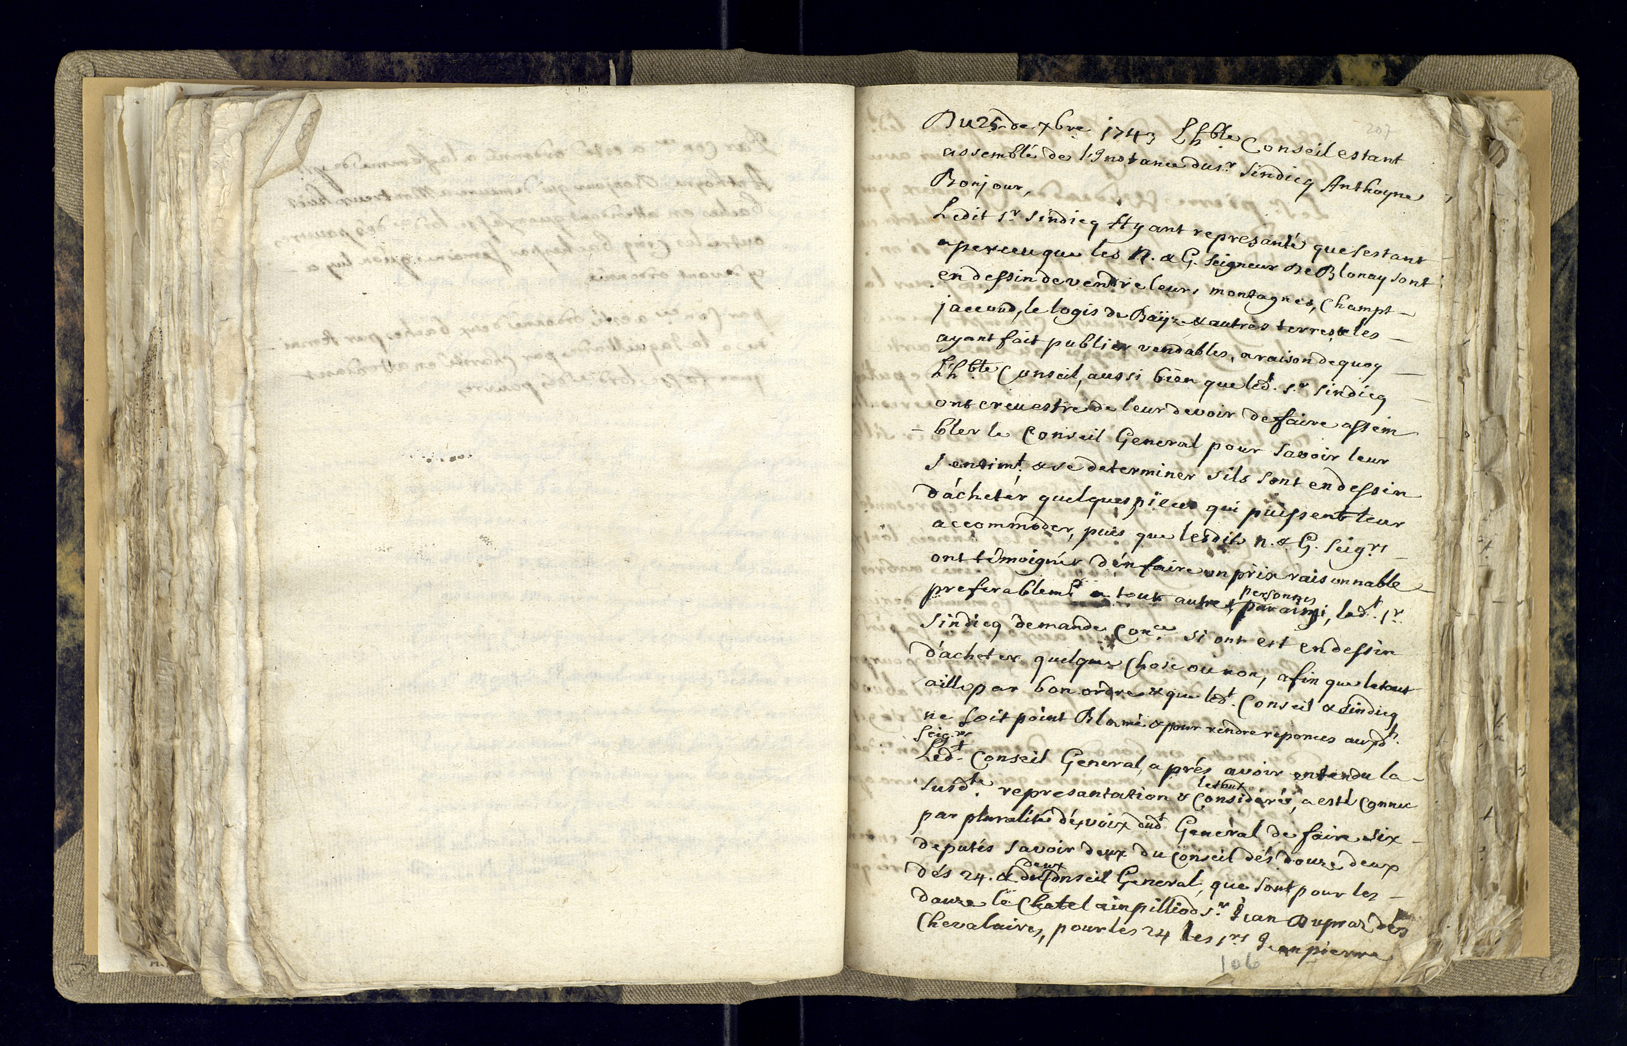 207
Du 25. de 7bre 1743 Lhble Conseil estant
assemblé de l'Instance du sr. Sindicq Anthoyne
Bonjour,
Ledit sr. Sindicq Ayant represanté que s'estant
aperceu que les N. & G. Seigneur De Blonay sont
en dessin de vendre leurs montagnes, Champt
jaccaud, le logis de Bayze & autres terres, & les
ayant fait publier vendables, a raison de quoy
Lhble Conseil, aussi bien que ledt. sr Sindicq
ont creu estre de leur devoir de faire assem
- bler le Conseil General pour savoir leur
sentimt. & se determiner s'ils sont en dessin
d'achetér quelques pieces qui puissent leur
accommoder, puis que lesdits N. & G. Seigrs
ont témoignés d'en faire un prix raisonnable
preferablemt a tout autres personnes par ainsi, ledt. sr.
Sindicq demande Conce. si ont est en dessin
d'acheter quelque Chose ou non, afin que le tout
aille par bon ordre & que ledt. Conseil & Sindicq
ne soit point Blamé & pour rendre reponces auxdts.
Seigrs
Ledt. Conseil General, a prés avoir entendu la
susdte. represantation & le tout Considérés, a esté Connu
par pluralité dex voix dudt General de faire six
deputés savoir deux du Conseil dés douze, deux
dés 24. & deux du Conseil General, que sont pour les
douze le Chatelain pilliod sr. Jean Dupraz dés
Chevalaires, pour les 24 les srs Jean pierre
106